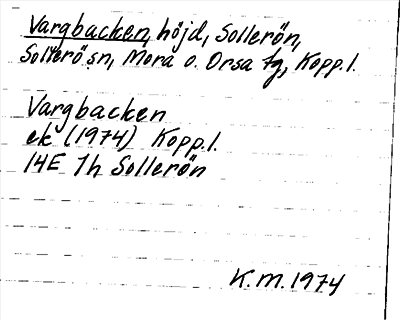 Vargbacken, höjd, Sollerön,
Sollerö sn, Mora o. Orsa tg, Kopp. l.
Vargbacken
ek (1974) Kopp. l.
14E 1h Sollerön
K.M. 1974